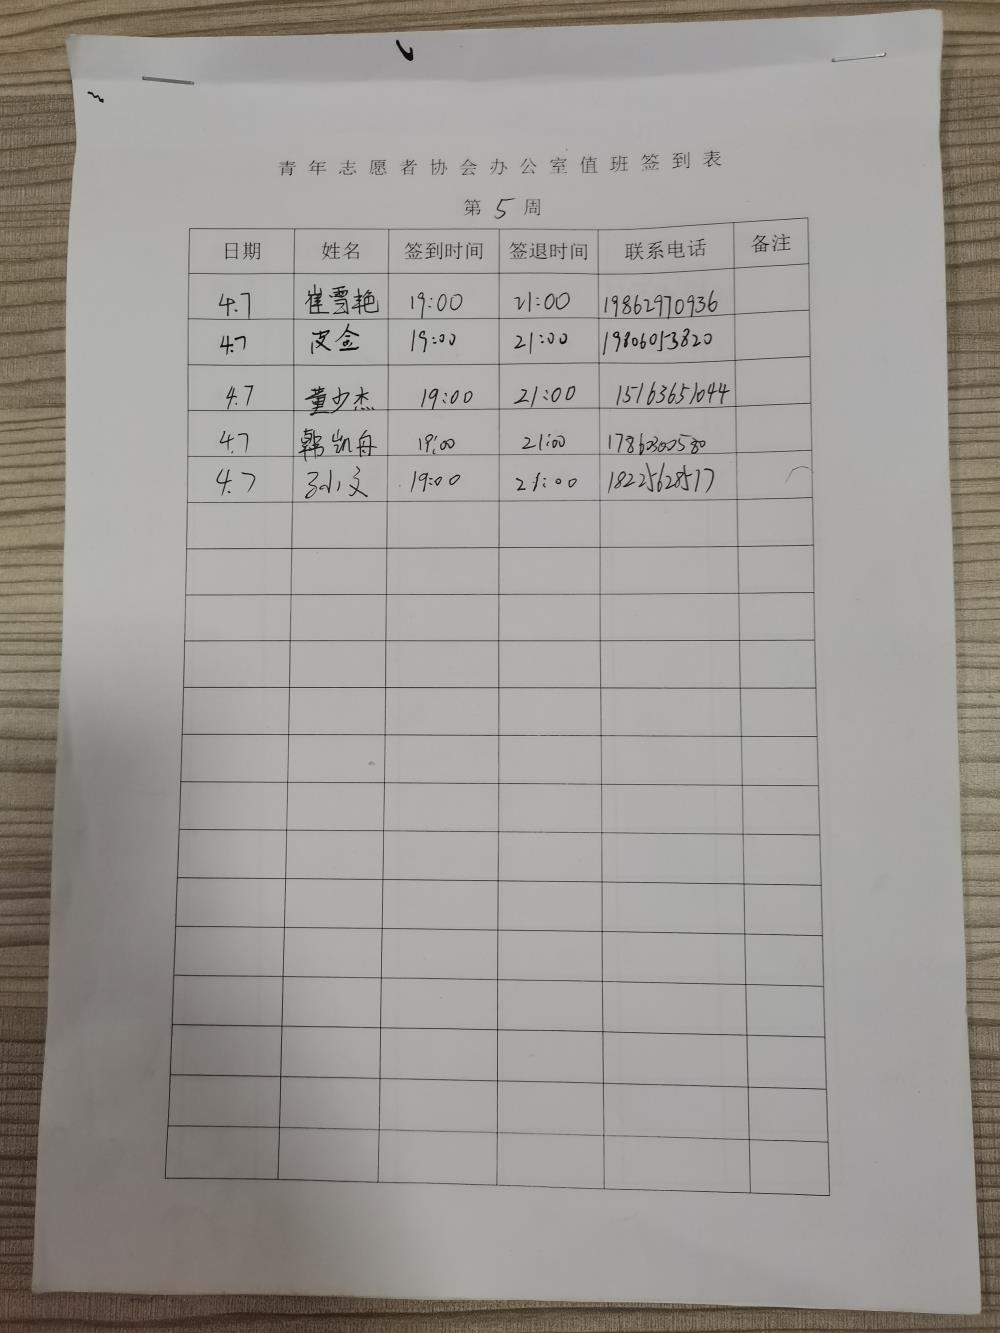 青年志愿者协会办公室值班签到表
第 5 周
日期 姓名 签到时间 签退时间 联系电话 备注
4.7 崔雪艳 19:00 21:00 19862970936
4.7 皮金 19:00 21:00 19806053820
4.7 董少杰 19:00 21:00 15163651044
4.7 韩凯舟 19:00 21:00
4.7 文 19:00 21:00 18225628517